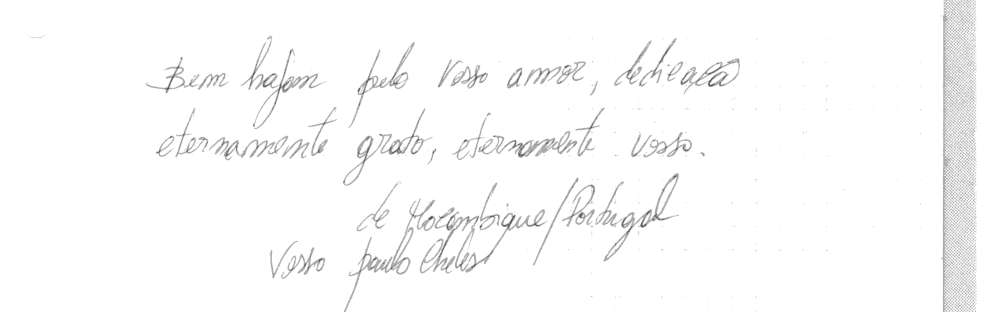 Bem hajam pelo vosso amor, dedicação
eternamente grato, eternamente vosso.
de Moçambique/Portugal
Vosso paulo